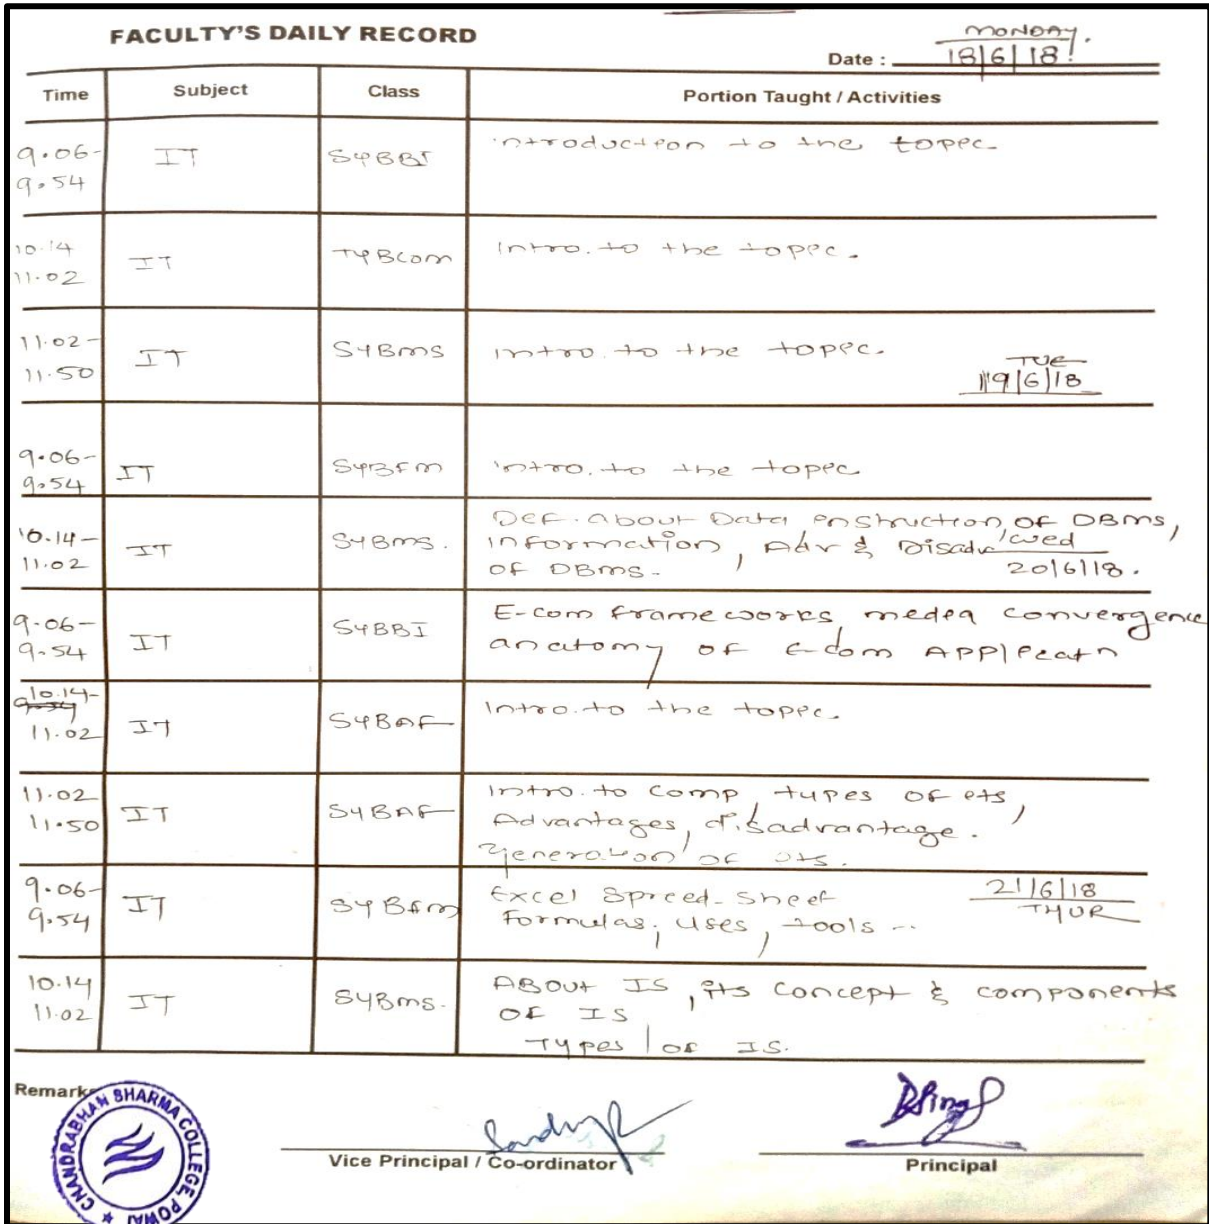 FACULTY'S DAILY RECORD
MONDAY.
Date : 18/6/18
Time Subject Class Portion Taught / Activities
9.06- IT SYBBI introduction to the topic.
9.54
10.14 IT TYBCom Intro. to the topic.
11.02
11.02- IT SYBms Intro. to the topic.
11.50
TUE
19/6/18
9.06- IT SYBFM intro. to the topic
9.54
10.14- IT SYBms. Def. About Data, instruction, of DBMS,
11.02 Information, Adv & Disadv
of DBms.
wed
20/6/18.
9.06- IT SYBBI E-com frameworks, media convergence
9.54 anatomy of E-com Applicatn
10.14- IT SYBAF Intro. to the topic.
11.02
11.02 IT SYBAF Intro. to comp, types of its,
11.50 Advantages, disadvantage.
generation of its.
21/6/18
THUR
9.06- IT SYBfm Excel Spreed-sheet
9.54 Formulas, uses, tools ..
10.14 IT SYBms. ABOUT IS, its concept & components
11.02 OF IS
Types of IS.
Remarks
CHANDRABHAN SHARMA COLLEGE, POWAI
Vice Principal / Co-ordinator Principal